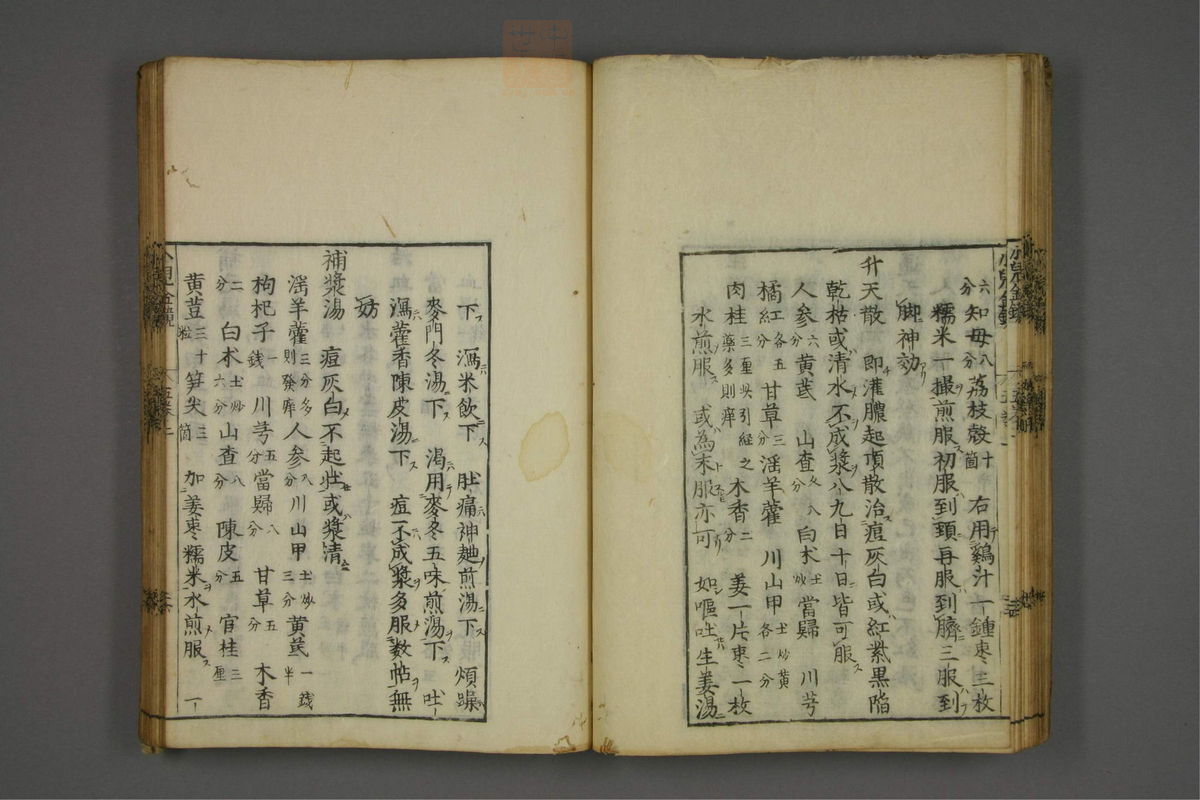 六分知母八分荔枝殼十箇右用鷄汁一鍾棗三枚
糯米一撮煎服初服到頚再服到臍三服到
脚神効
升天散 即灌膿起頂散治痘灰白或紅紫黒陷
乾枯或清水不成漿八九日十日皆可服
人參六分黄芪 山查八分白朮土炒當歸 川芎
橘紅各五分甘草三分滛羊藿 川山甲土炒黄各二分
肉桂三厘以引経之藥多則痒木香二分姜一片棗一枚
水煎服 或為末服亦可 如嘔吐生姜湯
下 瀉米飲下 肚痛神麯煎湯下 煩躁
麥門冬湯下 渇用麥冬五味煎湯下 吐
瀉藿香陳皮湯下 痘不成漿多服数帖無
妨
補漿湯 痘灰白不起壯或漿清
滛羊藿三分多則發痒人參八分川山甲土炒三分黄芪一錢半
枸杞子一錢川芎五分當歸八分甘草五分木香
二分白朮土炒六分山查八分陳皮五分官桂三厘
黄荳三十粒笋尖三箇加姜棗糯米水煎服